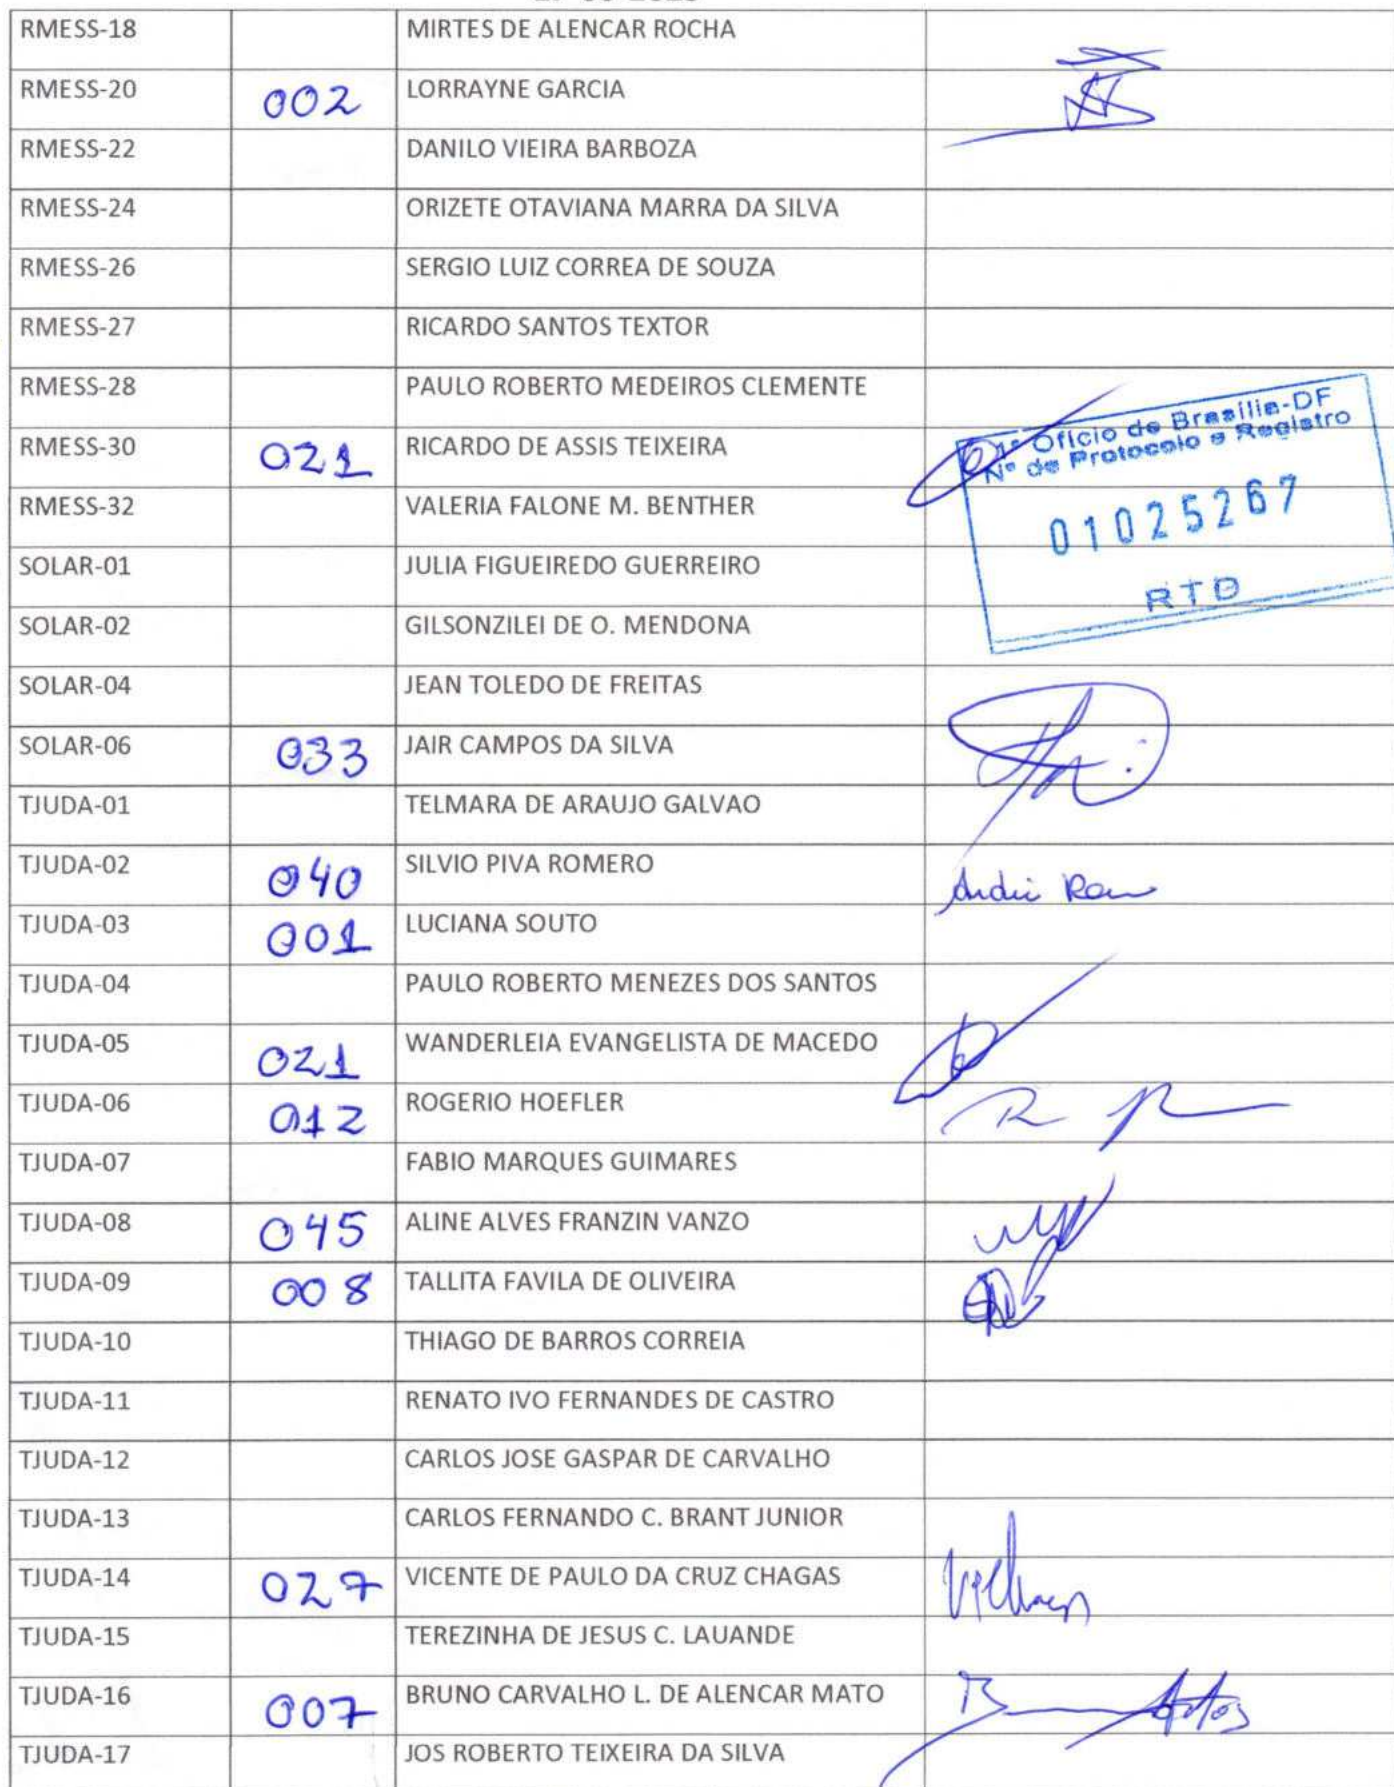 RMESS-18 MIRTES DE ALENCAR ROCHA
RMESS-20 002 LORRAYNE GARCIA
RMESS-22 DANILO VIEIRA BARBOZA
RMESS-24 ORIZETE OTAVIANA MARRA DA SILVA
RMESS-26 SERGIO LUIZ CORREA DE SOUZA
RMESS-27 RICARDO SANTOS TEXTOR
RMESS-28 PAULO ROBERTO MEDEIROS CLEMENTE
RMESS-30 021 RICARDO DE ASSIS TEIXEIRA
1º Ofício de Brasília-DF
Nº de Protocolo e Registro
RMESS-32 VALERIA FALONE M. BENTHER
01025267
SOLAR-01 JULIA FIGUEIREDO GUERREIRO
RTD
SOLAR-02 GILSONZILEI DE O. MENDONA
SOLAR-04 JEAN TOLEDO DE FREITAS
SOLAR-06 033 JAIR CAMPOS DA SILVA
TJUDA-01 TELMARA DE ARAUJO GALVAO
TJUDA-02 040 SILVIO PIVA ROMERO
TJUDA-03 001 LUCIANA SOUTO
TJUDA-04 PAULO ROBERTO MENEZES DOS SANTOS
TJUDA-05 021 WANDERLEIA EVANGELISTA DE MACEDO
TJUDA-06 012 ROGERIO HOEFLER
TJUDA-07 FABIO MARQUES GUIMARES
TJUDA-08 045 ALINE ALVES FRANZIN VANZO
TJUDA-09 008 TALLITA FAVILA DE OLIVEIRA
TJUDA-10 THIAGO DE BARROS CORREIA
TJUDA-11 RENATO IVO FERNANDES DE CASTRO
TJUDA-12 CARLOS JOSE GASPAR DE CARVALHO
TJUDA-13 CARLOS FERNANDO C. BRANT JUNIOR
TJUDA-14 027 VICENTE DE PAULO DA CRUZ CHAGAS
TJUDA-15 TEREZINHA DE JESUS C. LAUANDE
TJUDA-16 007 BRUNO CARVALHO L. DE ALENCAR MATO
TJUDA-17 JOS ROBERTO TEIXEIRA DA SILVA